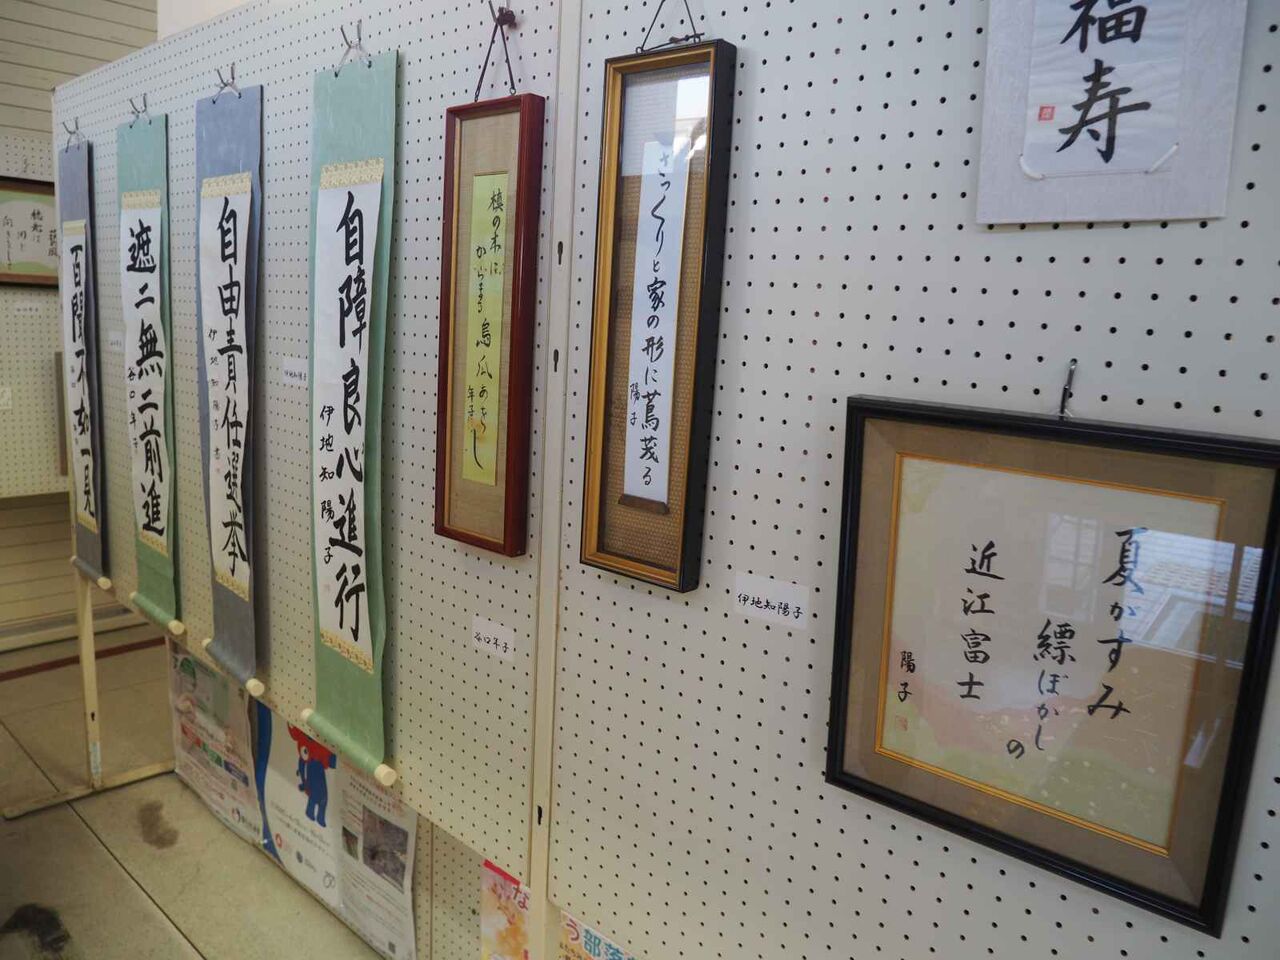 百聞不如一見
遮二無二前進
谷口年子
自由責任選挙
伊地知陽子 書
伊地知陽子
自障良心進行
伊地知陽子
槙の木に
からまる烏瓜あをし
年子
谷口年子
さっくりと家の形に蔦茂る
陽子
伊地知陽子
福寿
夏がすみ
縹ぼかし
の
近江富士
陽子
な
う部落